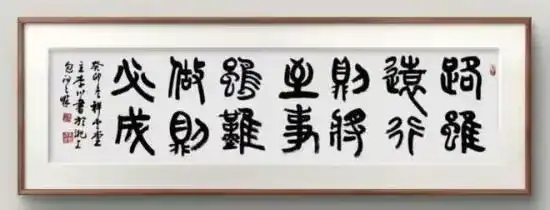 路雖
遠行
則將
至事
雖難
做則
必成
癸卯
書於